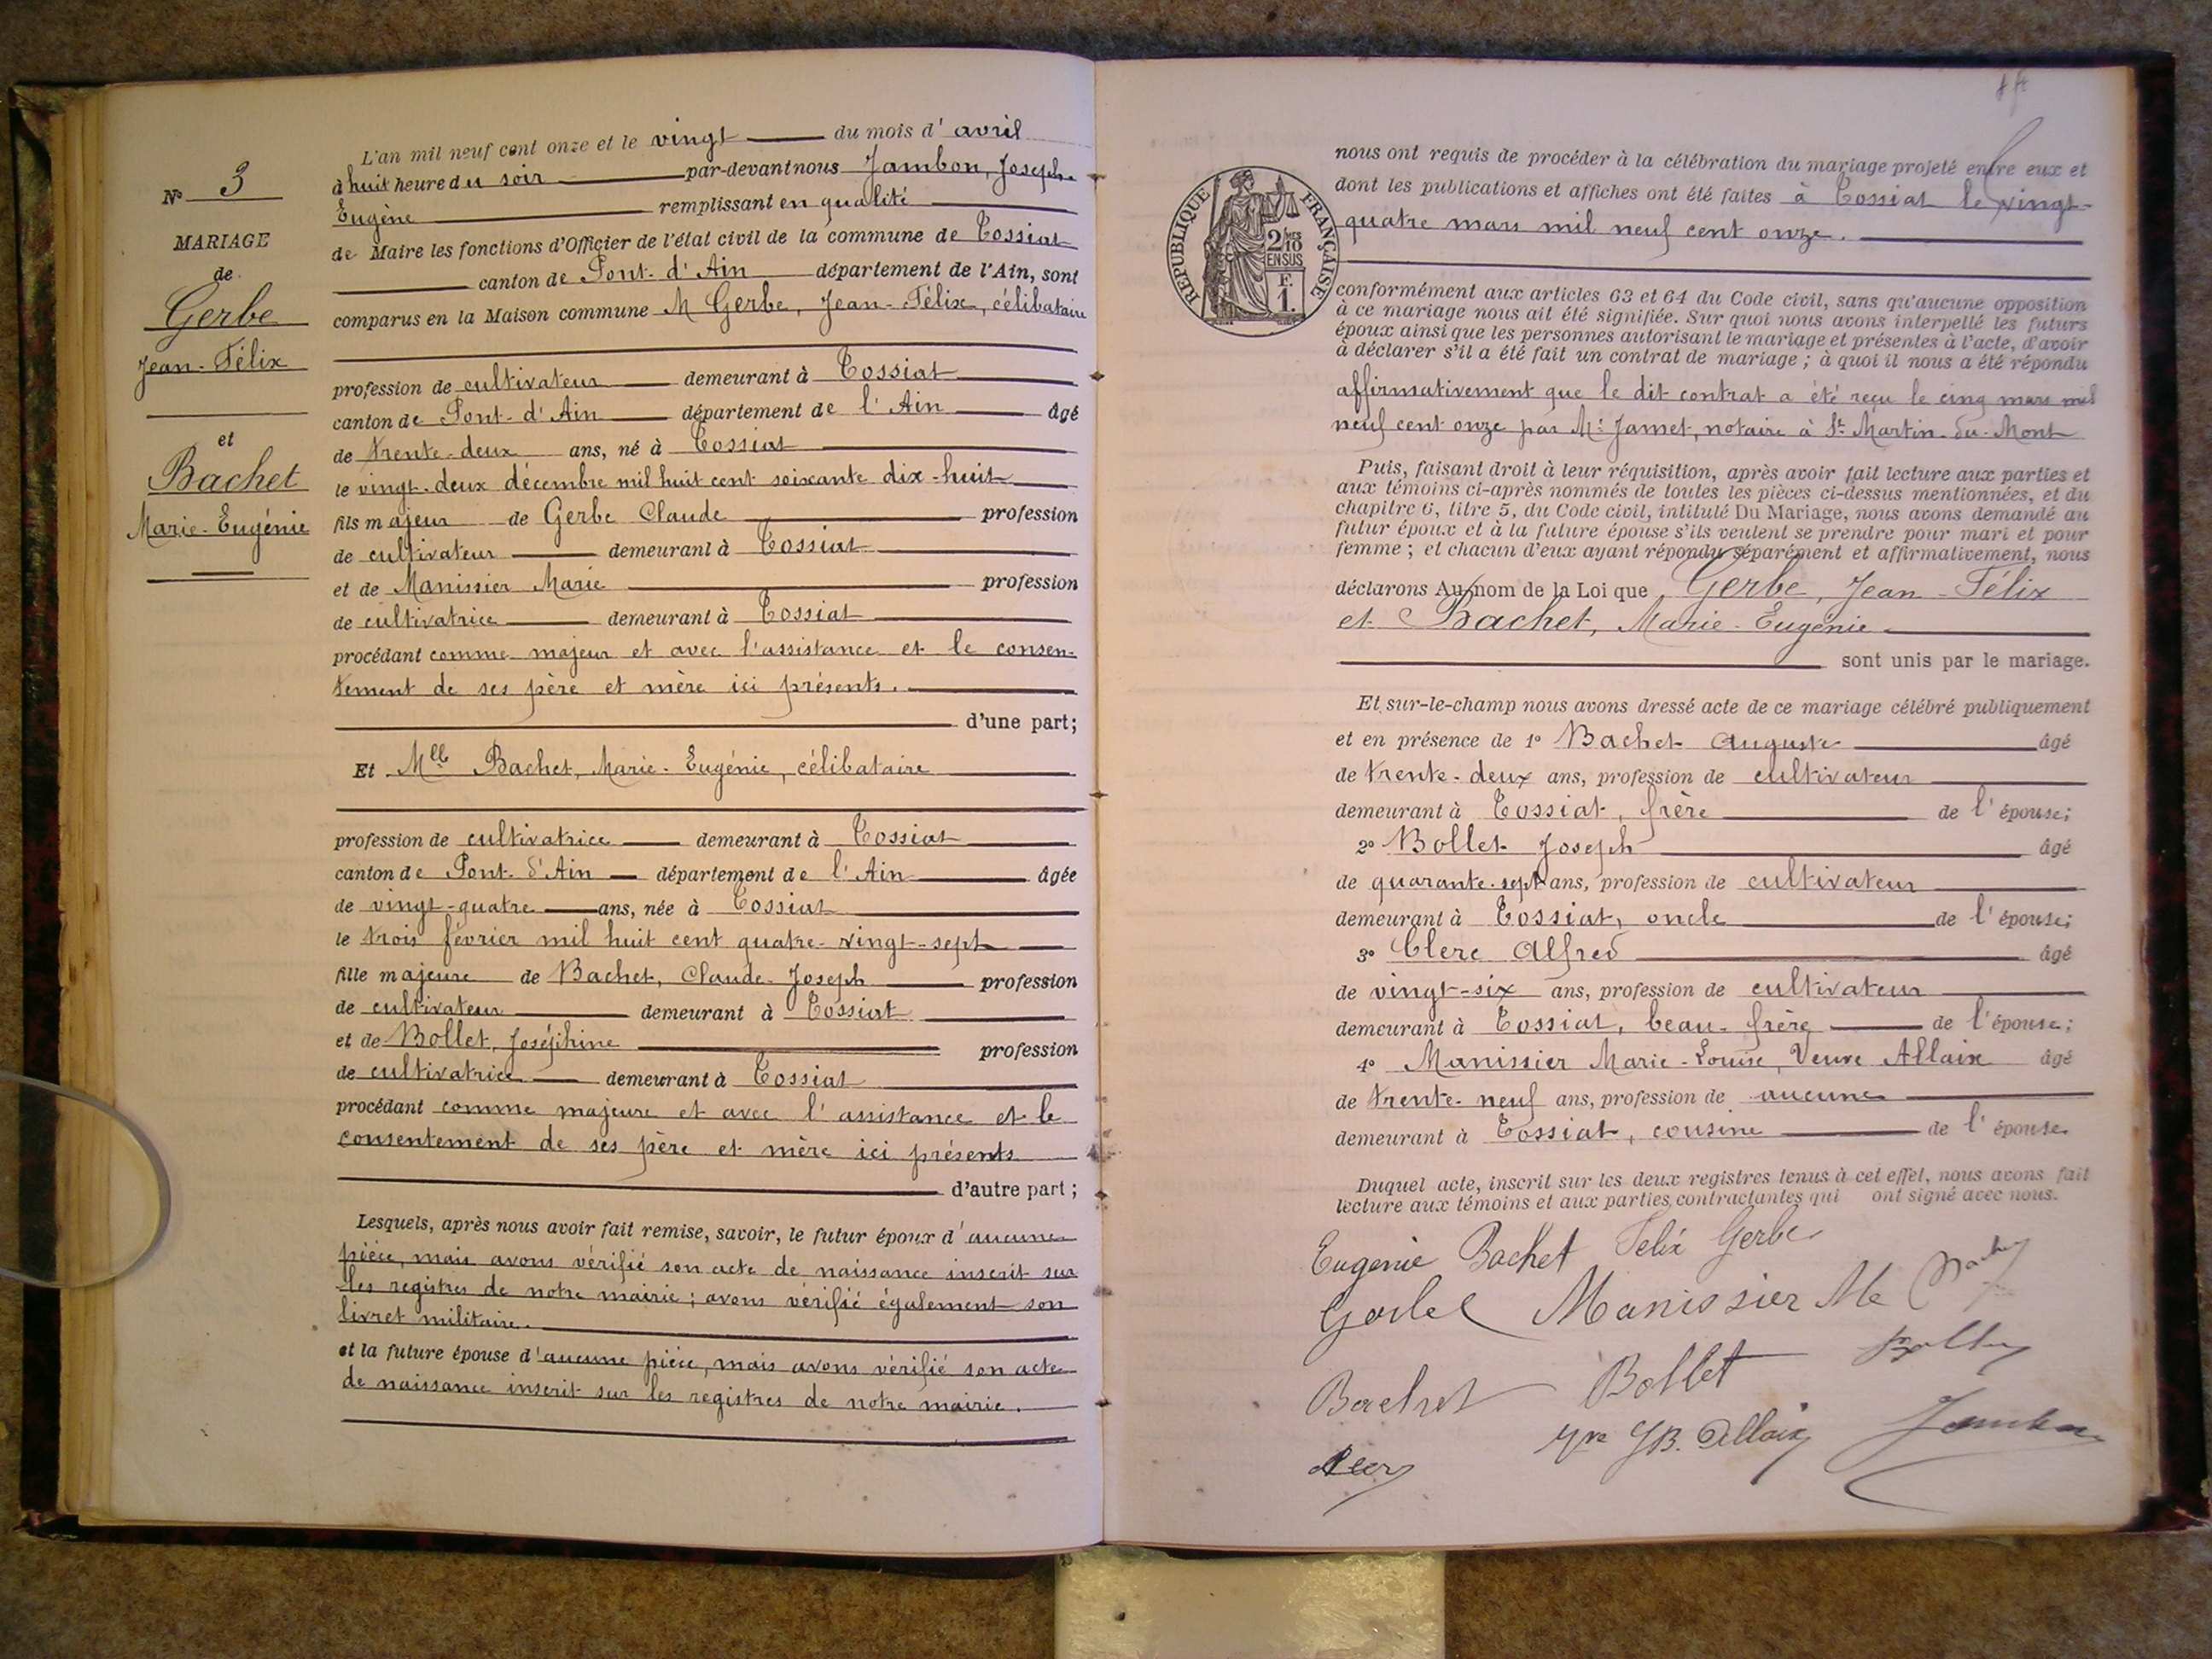 N° 3
MARIAGE
de
Gerbe
Jean-Félix
et
Bachet
Marie-Eugénie
L'an mil neuf cent onze et le vingt du mois d'avril
à huit heure du soir par-devant nous Jambon, Joseph
Eugène remplissant en qualité
de Maire les fonctions d'Officier de l'état civil de la commune de Tossiat
canton de Pont-d'Ain département de l'Ain, sont
comparus en la Maison commune M Gerbe, Jean-Félix, célibataire
profession de cultivateur demeurant à Tossiat
canton de Pont-d'Ain département de l'Ain âgé
de trente-deux ans, né à Tossiat
le vingt-deux décembre mil huit cent soixante dix-huit
fils majeur de Gerbe Claude profession
de cultivateur demeurant à Tossiat
et de Manissier Marie profession
de cultivatrice demeurant à Tossiat
procédant comme majeur et avec l'assistance et le consen-
tement de ses père et mère ici présents.
d'une part;
Et Mlle Bachet, Marie-Eugénie, célibataire
profession de cultivatrice demeurant à Tossiat
canton de Pont-d'Ain département de l'Ain âgée
de vingt-quatre ans, née à Tossiat
le trois février mil huit cent quatre-vingt-sept
fille majeure de Bachet, Claude-Joseph profession
de cultivateur demeurant à Tossiat
et de Bollet, Joséphine profession
de cultivatrice demeurant à Tossiat
procédant comme majeure et avec l'assistance et le
consentement de ses père et mère ici présents
d'autre part;
Lesquels, après nous avoir fait remise, savoir, le futur époux d'aucune
pièce, mais avons vérifié son acte de naissance inscrit sur
les registres de notre mairie; avons vérifié également son
livret militaire.
et la future épouse d'aucune pièce, mais avons vérifié son acte
de naissance inscrit sur les registres de notre mairie.
RÉPUBLIQUE FRANÇAISE
2/10
EN SUS
F.
1.
nous ont requis de procéder à la célébration du mariage projeté entre eux et
dont les publications et affiches ont été faites à Tossiat le vingt-
quatre mars mil neuf cent onze.
conformément aux articles 63 et 64 du Code civil, sans qu'aucune opposition
à ce mariage nous ait été signifiée. Sur quoi nous avons interpellé les futurs
époux ainsi que les personnes autorisant le mariage et présentes à l'acte, d'avoir
à déclarer s'il a été fait un contrat de mariage; à quoi il nous a été répondu
affirmativement que le dit contrat a été reçu le cinq mars mil
neuf cent onze par Me Jamet, notaire à St Martin-du-Mont
Puis, faisant droit à leur réquisition, après avoir fait lecture aux parties et
aux témoins ci-après nommés de toutes les pièces ci-dessus mentionnées, et du
chapitre 6, titre 5, du Code civil, intitulé Du Mariage, nous avons demandé au
futur époux et à la future épouse s'ils veulent se prendre pour mari et pour
femme; et chacun d'eux ayant répondu séparément et affirmativement, nous
déclarons Au nom de la Loi que Gerbe, Jean-Félix
et Bachet, Marie-Eugénie
sont unis par le mariage.
Et sur-le-champ nous avons dressé acte de ce mariage célébré publiquement
et en présence de 1° Bachet Auguste âgé
de trente-deux ans, profession de cultivateur
demeurant à Tossiat, frère de l'épouse;
2° Bollet Joseph âgé
de quarante-sept ans, profession de cultivateur
demeurant à Tossiat, oncle de l'épouse;
3° Clerc Alfred âgé
de vingt-six ans, profession de cultivateur
demeurant à Tossiat, beau-frère de l'épouse;
4° Manissier Marie-Louise, Veuve Allaix âgé
de trente-neuf ans, profession de aucune
demeurant à Tossiat, cousine de l'épouse.
Duquel acte, inscrit sur les deux registres tenus à cet effet, nous avons fait
lecture aux témoins et aux parties contractantes qui ont signé avec nous.
Eugenie Bachet Felix Gerbe
Manissier Me
Bachet Bollet
Vve JB. Allaix Jambon